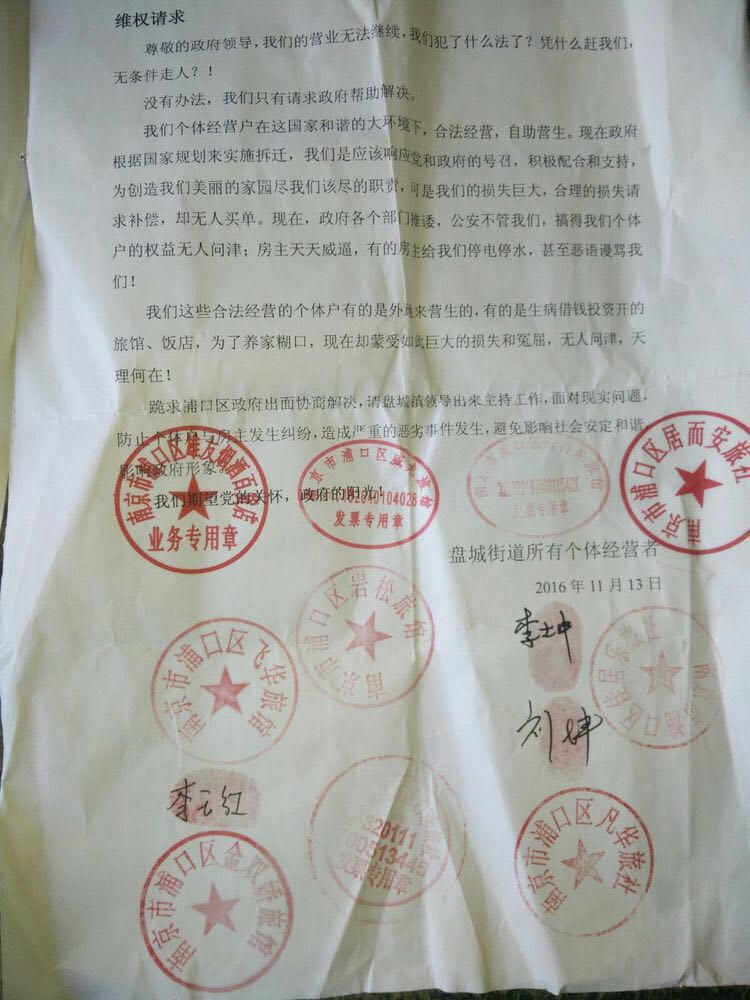 维权请求
尊敬的政府领导，我们的营业无法继续，我们犯了什么法了？凭什么赶我们，
无条件走人？！
没有办法，我们只有请求政府帮助解决。
我们个体经营户在这国家和谐的大环境下，合法经营，自助营生。现在政府
根据国家规划来实施拆迁，我们是应该响应党和政府的号召，积极配合和支持，
为创造我们美丽的家园尽我们该尽的职责，可是我们的损失巨大，合理的损失请
求补偿，却无人买单。现在，政府各个部门推诿，公安不管我们，搞得我们个体
户的权益无人问津；房主天天威逼，有的房主给我们停电停水，甚至恶语谩骂我
们！
我们这些合法经营的个体户有的是外地来营生的，有的是生病借钱投资开的
旅馆、饭店，为了养家糊口，现在却蒙受如此巨大的损失和冤屈，无人问津，天
理何在！
跪求浦口区政府出面协商解决，请盘城镇领导出来主持工作，面对现实问题，
防止个体户与房主发生纠纷，造成严重的恶劣事件发生，避免影响社会安定和谐，
影响政府形象。
我们期望党的关怀，政府的阳光！
南京市浦口区雄及烟酒百货店
业务专用章
南京市浦口区
发票专用章
南京市浦口区
发票专用章
南京市浦口区居而安旅社
盘城街道所有个体经营者
2016年11月13日
南京市浦口区岩松旅馆
南京市浦口区飞华旅馆
南京市浦口区佳居乐旅社
刘坤
李云红
南京市浦口区金双桥旅馆
320111
700513446
发票专用章
南京市浦口区凡华旅社